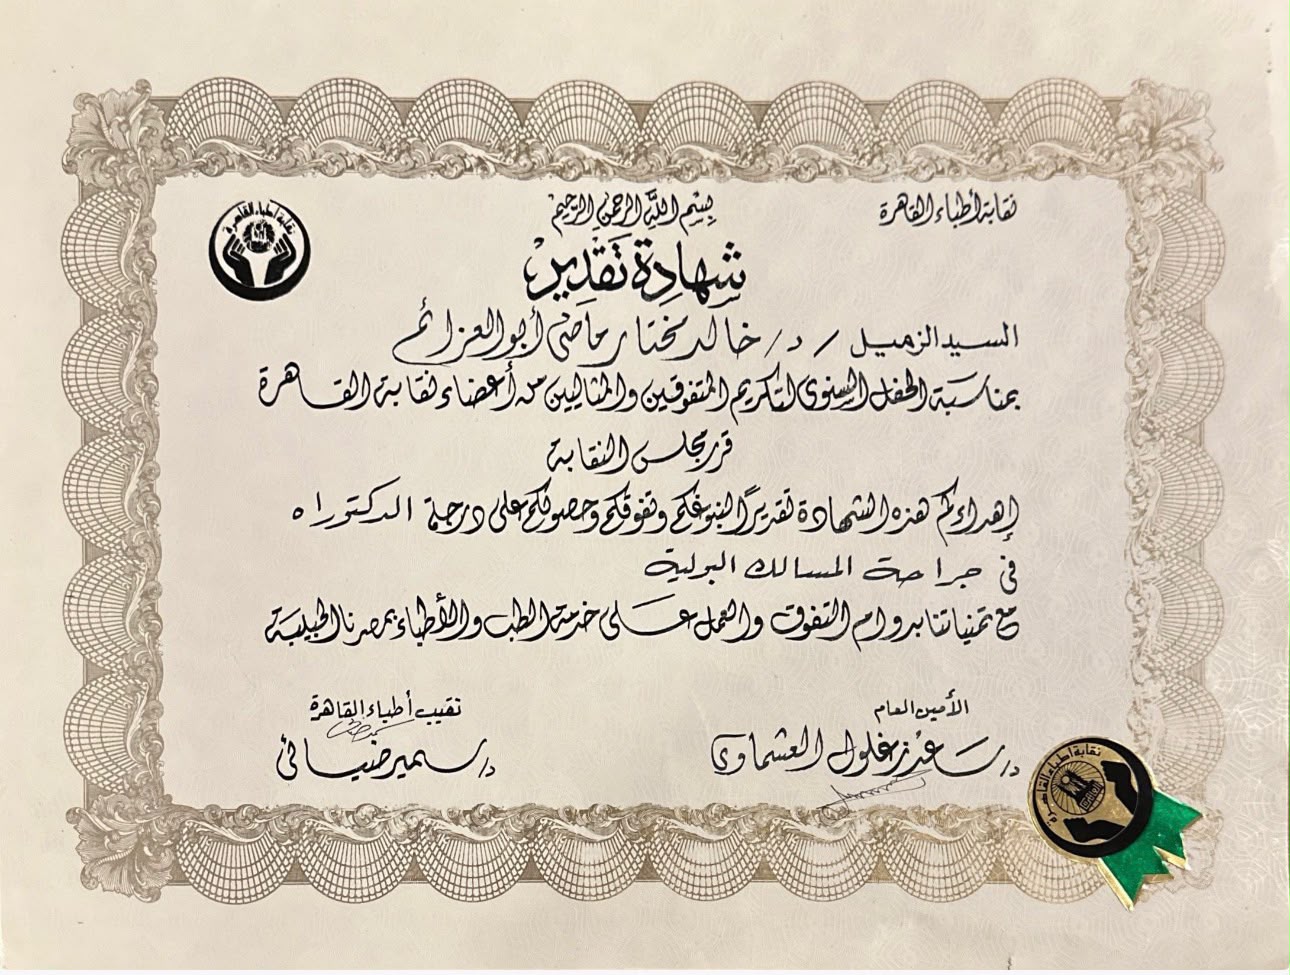 نقابة أطباء القاهرة
بسم الله الرحمن الرحيم
نقابة أطباء القاهرة
شهادة تقدير
السيد الزميل / د/ خالد مختار ماضى أبو العزائم
بمناسبة الحفل السنوى لتكريم المتفوقين والمثاليين من أعضاء نقابة القاهرة
قرر مجلس النقابة
إهداءكم هذه الشهادة تقديرًا لنبوغكم وتفوقكم وحصولكم على درجة الدكتوراه
فى جراحة المسالك البولية
مع تمنياتنا بدوام التفوق والعمل على خدمة الطب والأطباء بمصرنا الحبيبة
الأمين العام
د. سعد زغلول العشماوى
نقيب أطباء القاهرة
د. سمير ضيائى
نقابة أطباء القاهرة